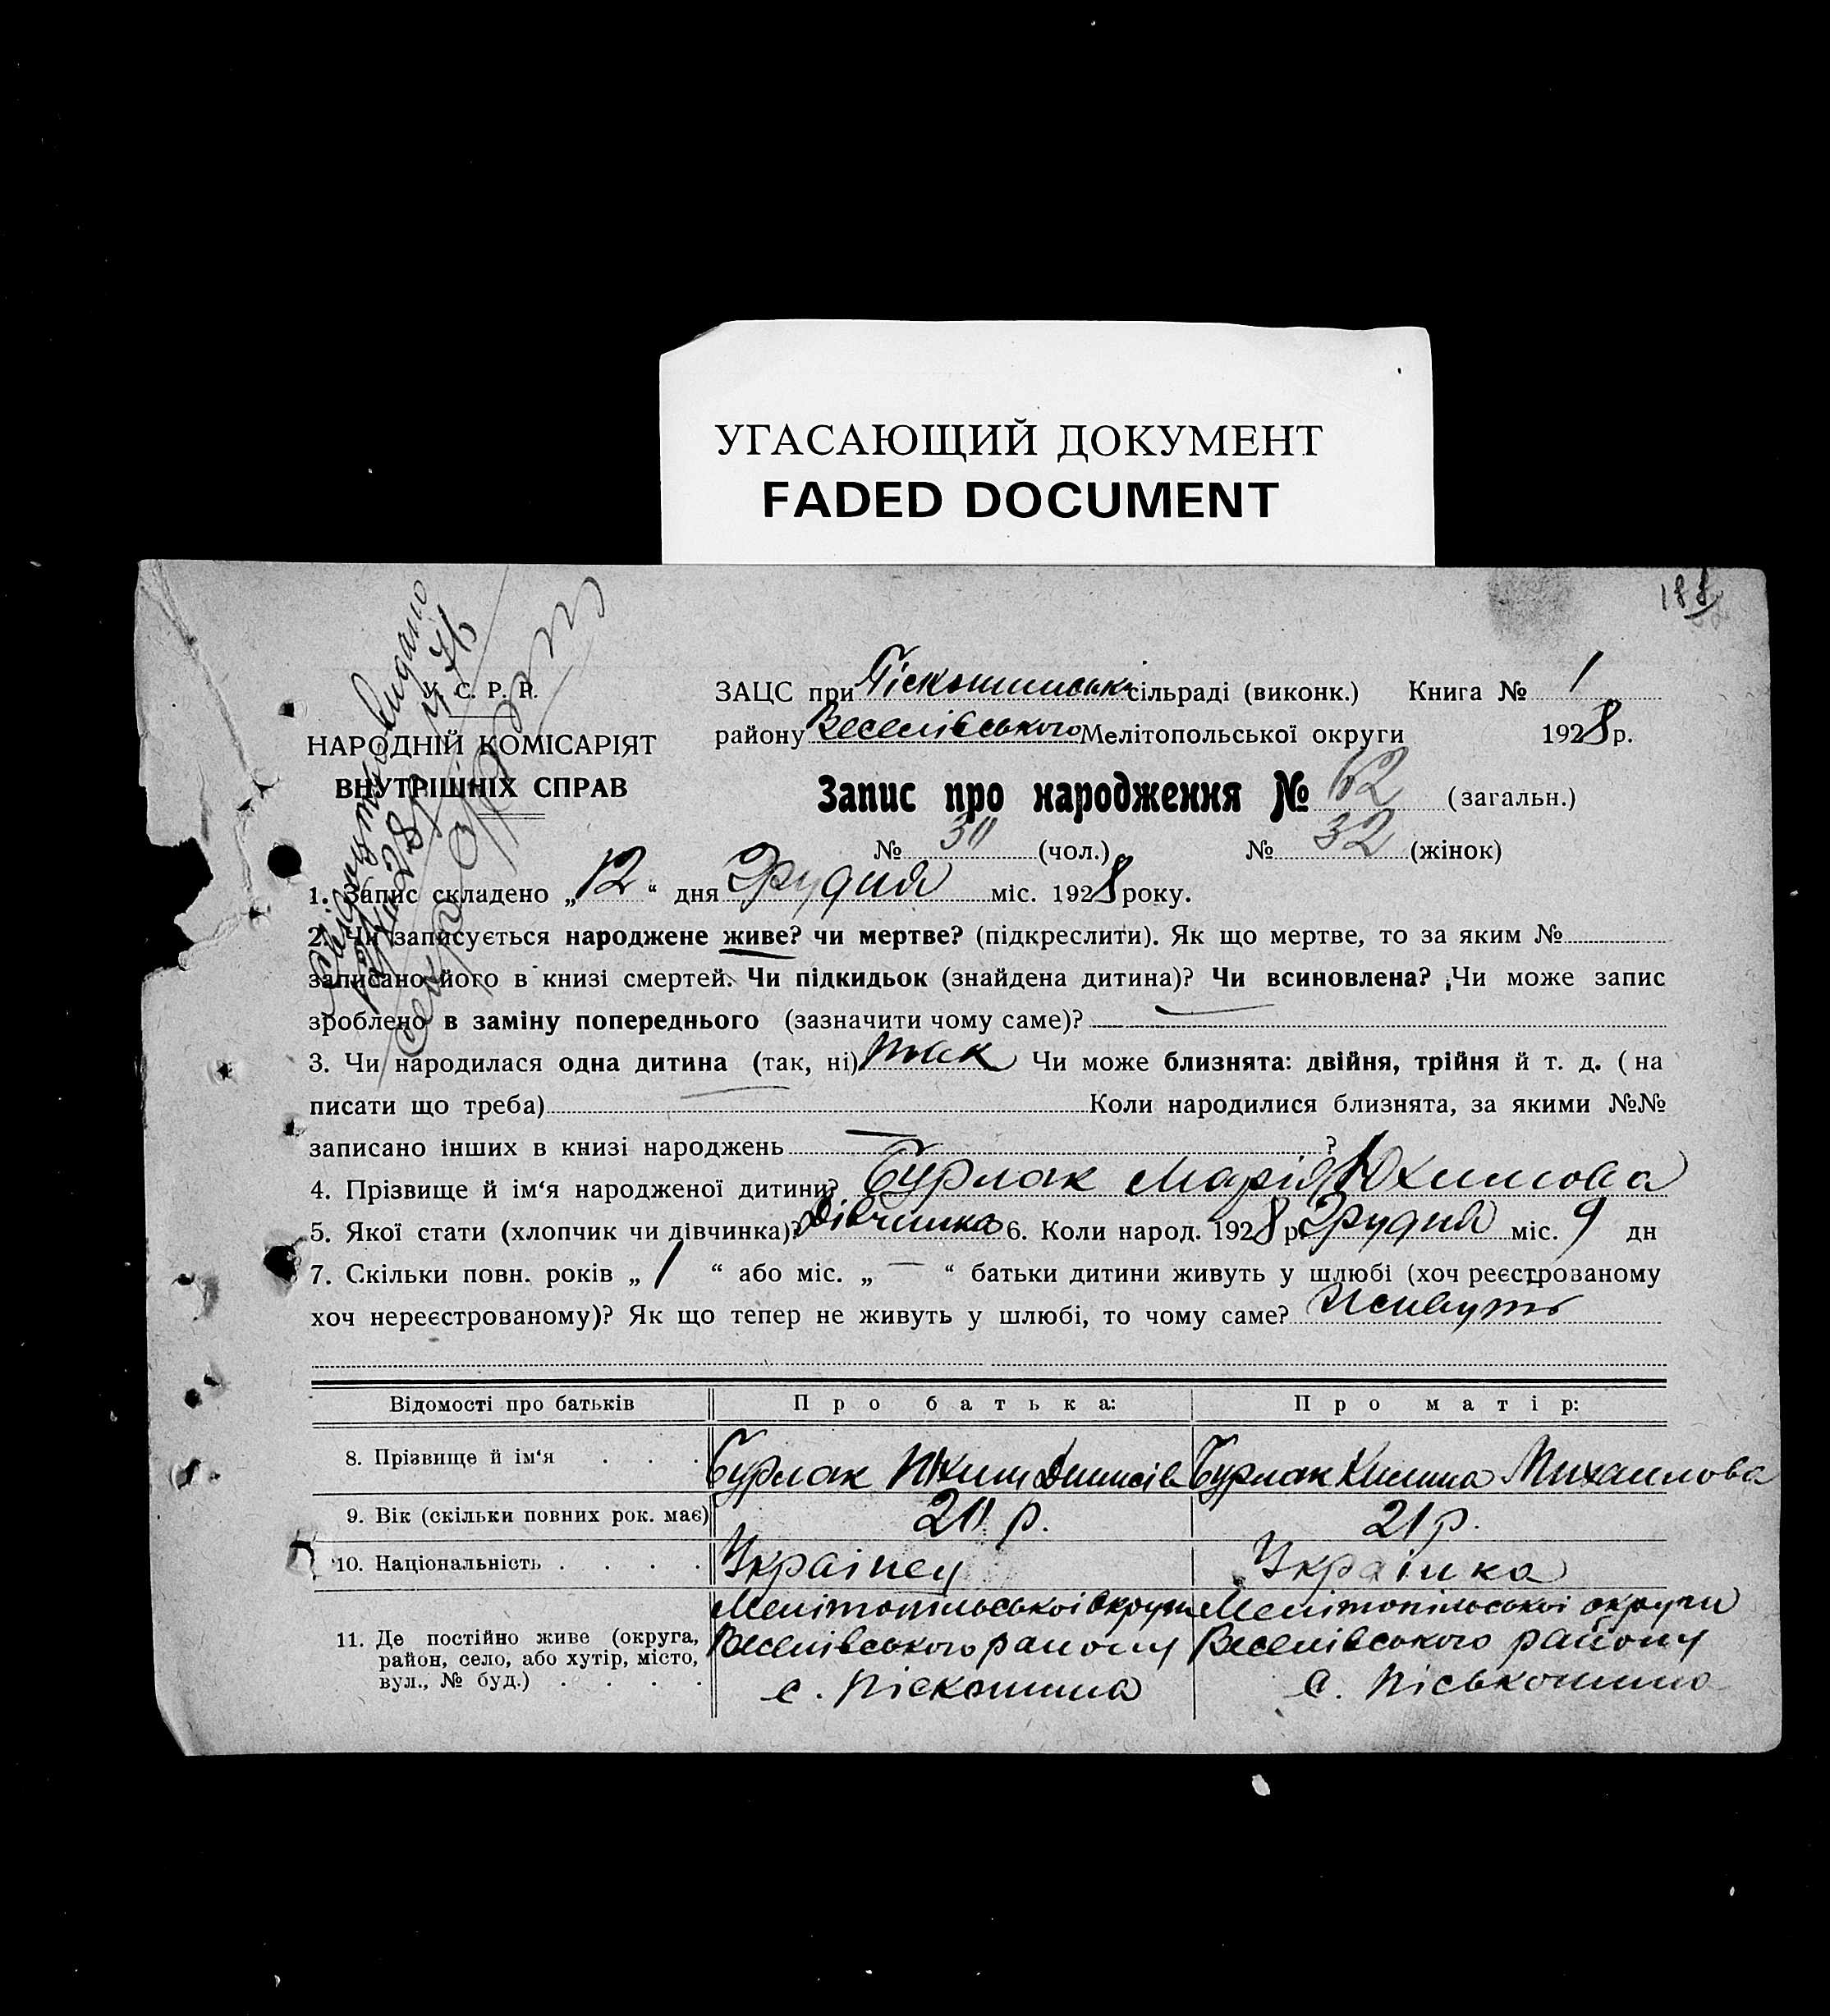 УГАСАЮЩИЙ ДОКУМЕНТ
FADED DOCUMENT
188
У. С. Р. Р.
НАРОДНІЙ КОМІСАРІЯТ
ВНУТРІШНІХ СПРАВ
видано
ЗАЦС при Піскошинськ сільраді (виконк.) Книга № 1
району Веселівського Мелітопольської округи 1928 р.
Запис про народження № 62 (загальн.)
№ 30 (чол.) № 32 (жінок)
1. Запис складено „12“ дня Грудня міс. 1928 року.
2. Чи записується народжене живе? чи мертве? (підкреслити). Як що мертве, то за яким №
записано його в книзі смертей. Чи підкидьок (знайдена дитина)? Чи всиновлена? Чи може запис
зроблено в заміну попереднього (зазначити чому саме)? —
3. Чи народилася одна дитина (так, ні) так Чи може близнята: двійня, трійня й т. д. (на
писати що треба) — Коли народилися близнята, за якими №№
записано інших в книзі народжень — ?
4. Прізвище й ім‘я народженої дитини? Бурлак Марія Юхимова
5. Якої стати (хлопчик чи дівчинка)? Дівчинка 6. Коли народ. 1928 р. Грудня міс. 9 дн
7. Скільки повн. років „ 1 “ або міс. „ — “ батьки дитини живуть у шлюбі (хоч реєстрованому
хоч нереєстрованому)? Як що тепер не живуть у шлюбі, то чому саме? Живуть
Відомості про батьків Про батька: Про матір:
8. Прізвище й ім‘я . . . Бурлак Юхим Денисів Бурлак Михаилова
9. Вік (скільки повних рок. має) 20 р. 21 р.
10. Національність . . . . Українец Українка
11. Де постійно живе (округа, район, село, або хутір, місто, вул., № буд.) . . . .
Мелітопільської округи Мелітопільської округи
Веселівського району Веселівського району
с. Піскошина с. Піськошино